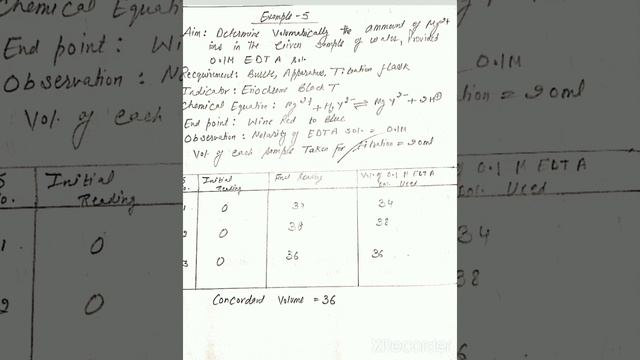 Example-5
Aim: Determine Volumatically the ammount of Mg2+
ins in the Given Sample of water, Provided
0.1M EDTA sol.
Requirement: Burette, Apparatus, Titration flask
Indicator: Eriochrome Black T
Chemical Equation: Mg2+ + H2Y2- ⇌ MgY2- + 2H⊕
End point: Wine Red to Blue
Observation: Molarity of EDTA sol. = 0.1M
Vol. of each Sample Taken for titration = 20ml
S No. Initial Reading End Reading Vol. of 0.1 M EDTA sol. Used
1 0 34
2 0 38 38
3 0 36 36
Concordant Volume = 36
Chemical Equa
End point: Wine
Observation: 
Vol. of each
0.1M
tion = 20ml
S No. Initial Reading
1 0
2 0
0.1 M EDTA
sol. Used
34
38
XRecorder